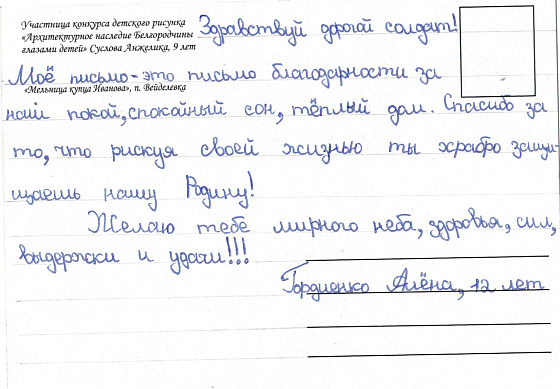 Участница конкурса детского рисунка
«Архитектурное наследие Белгородчины
глазами детей» Суслова Анжелика, 9 лет
Здравствуй дорогой солдат!
Моё письмо-это письмо благодарности за
«Мельница купца Иванова», п. Вейделевка
наш покой, спокойный сон, тёплый дом. Спасибо за
то, что рискуя своей жизнью ты храбро защи-
щаешь нашу Родину!
Желаю тебе мирного неба, здоровья, сил,
выдержки и удачи!!!
Гордиенко Алёна, 12 лет